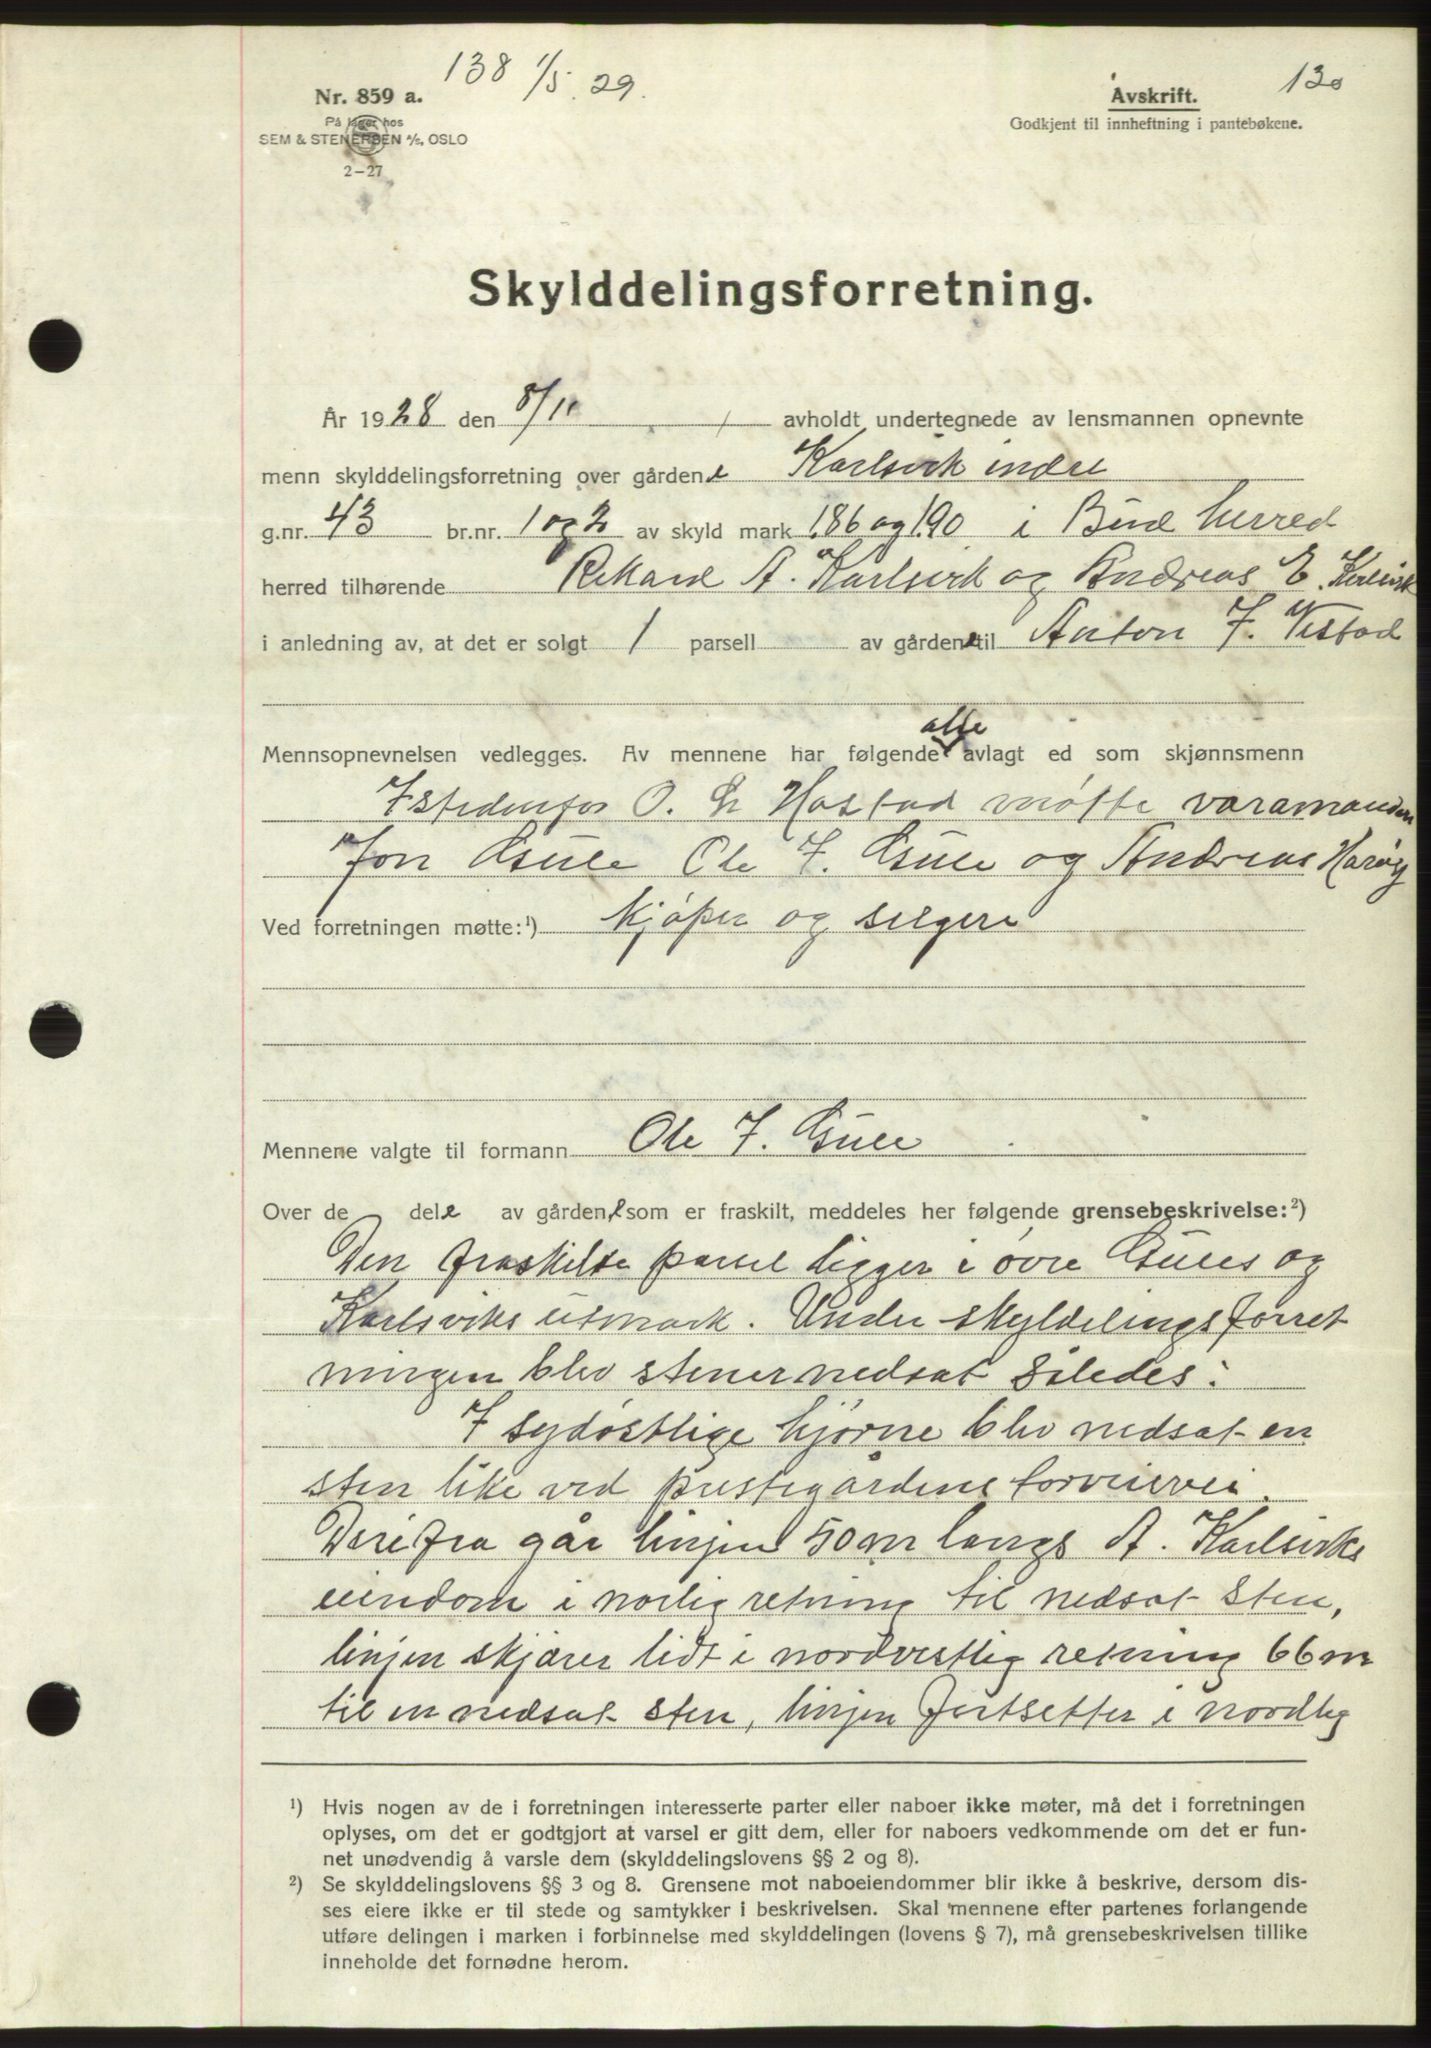 138 1/5 29.
130
Nr. 859 a.
På lager hos
SEM & STENERSEN A/S, OSLO
2-27
Avskrift.
Godkjent til innheftning i pantebøkene.
Skylddelingsforretning.
År 1928 den 8/11 avholdt undertegnede av lensmannen opnevnte
menn skylddelingsforretning over gårdene Karlsvik indre
g.nr. 43 br.nr. 1 og 2 av skyld mark 1.86 og 1.90 i Bud herred
herred tilhørende Rikard A. Karlsvik og Andreas E. Karlsvik
i anledning av, at det er solgt 1 parsell av gårdene til Anton J. Vestad
Mennsopnevnelsen vedlegges. Av mennene har følgende alle avlagt ed som skjønnsmenn
Istedenfor O. Hostad møtte varamanden
Jon Gule Ole J. Gule og Andreas Harøy
Ved forretningen møtte:¹) kjøper og selgere
Mennene valgte til formann Ole J. Gule
Over de dele av gårdene, som er fraskilt, meddeles her følgende grensebeskrivelse:²)
Den fraskilte parsel ligger i øvre Gules og
Karlsviks utmark. Under skyldelingsforret
ningen blev stener nedsat således:
I sydøstlige hjørne blev nedsat en
sten like ved prestegårdens torveiervei.
Derifra går linjen 50 m langs A. Karlsviks
eiendom i norlig retning til nedsat sten,
linjen skjærer lidt i nordvestlig retning 66 m
til en nedsat sten, linjen fortsetter i nordlig
¹) Hvis nogen av de i forretningen interesserte parter eller naboer ikke møter, må det i forretningen
oplyses, om det er godtgjort at varsel er gitt dem, eller for naboers vedkommende om det er fun-
net unødvendig å varsle dem (skylddelingslovens §§ 2 og 8).
²) Se skylddelingslovens §§ 3 og 8. Grensene mot naboeiendommer blir ikke å beskrive, dersom dis-
ses eiere ikke er til stede og samtykker i beskrivelsen. Skal mennene efter partenes forlangende
utføre delingen i marken i forbinnelse med skylddelingen (lovens § 7), må grensebeskrivelsen tillike
inneholde det fornødne herom.